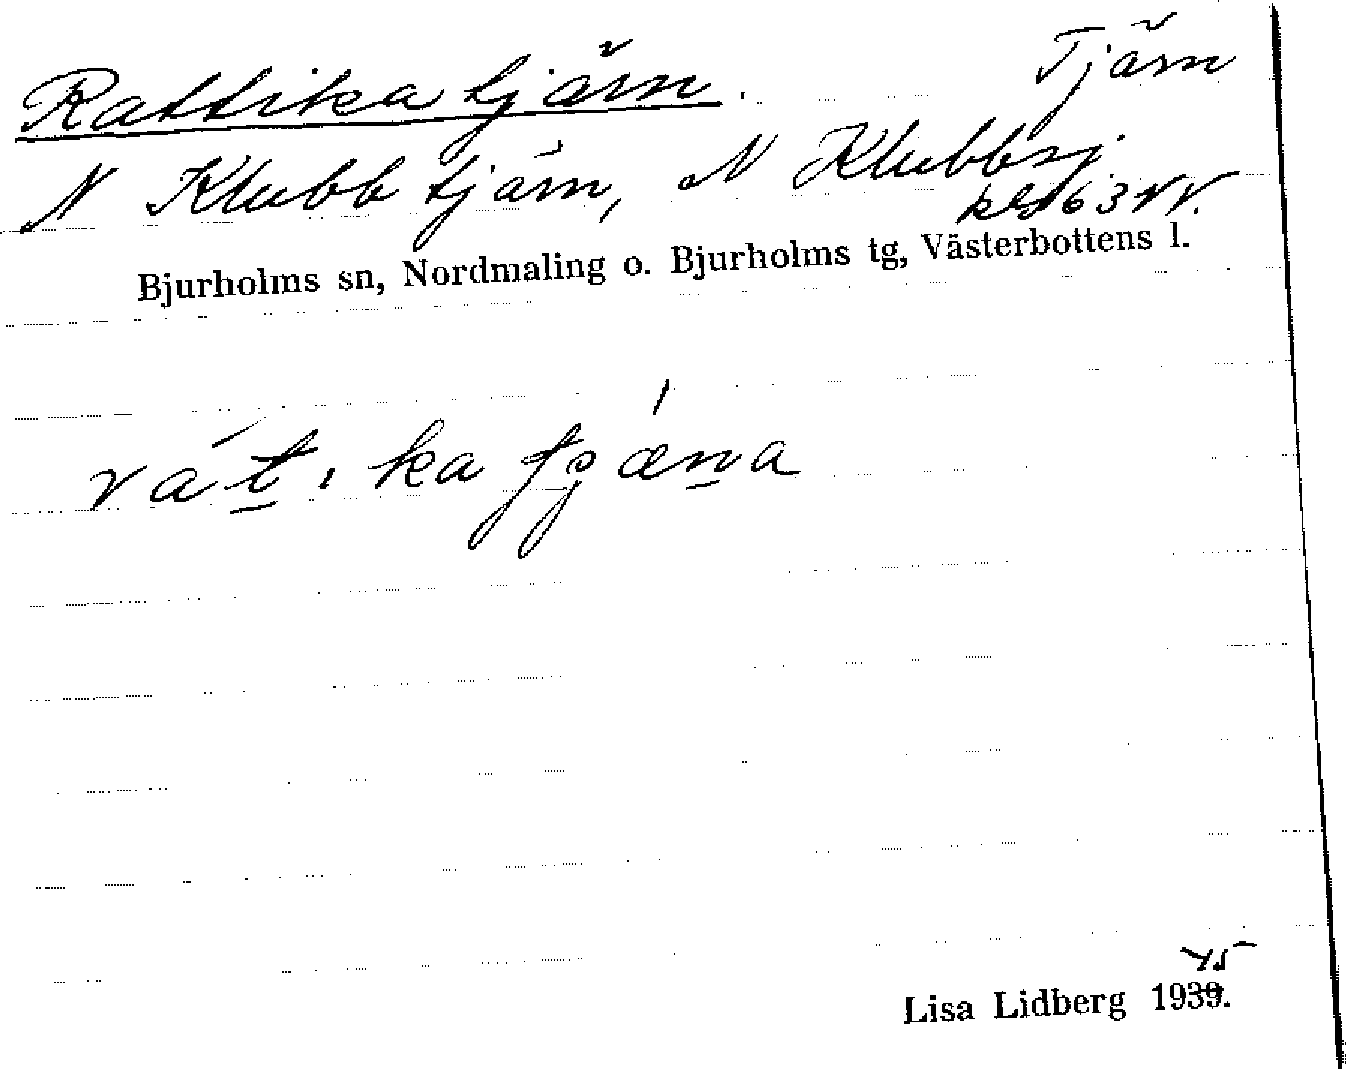 Rattikatjärn. Tjärn
N Klubbtjärn, N Klubbsj.
kbl 63 NV.
Bjurholms sn, Nordmaling o. Bjurholms tg, Västerbottens l.
Lisa Lidberg 1939.
45